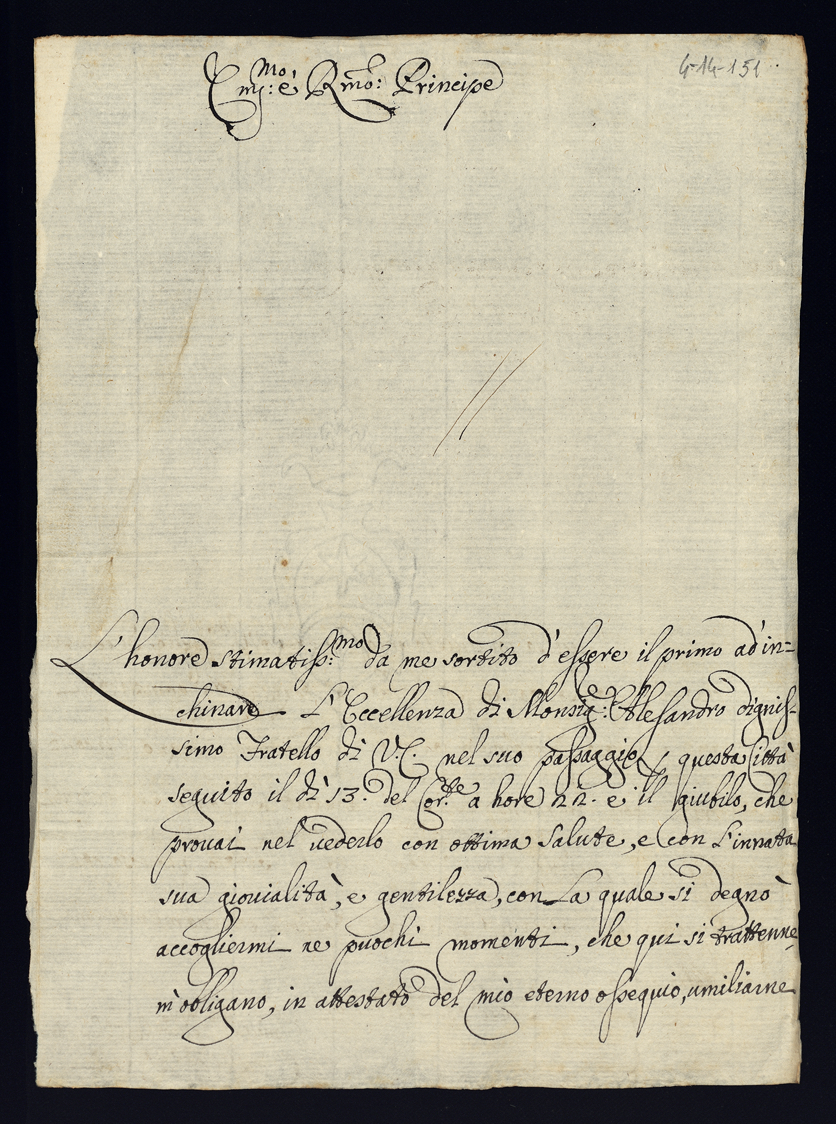 4-14-151
Em:mo è Rmo: Principe
L'honore stimatiss:mo da me sortito d'essere il primo ad'in=
chinare L'Eccellenza di Monsig:re Alesandro dignis-
simo Fratello di V.E. nel suo passaggio p questa Città
seguito il dì 13. del Cor:te a hore 22. e il giubilo, che
prouai nel uederlo con ottima Salute, e con L'innata
sua giouialità, e gentilezza, con La quale si degnò
accogliermi ne puochi momenti, che qui si trattenne,
m'obligano, in attestato del mio eterno ossequio, umiliarne